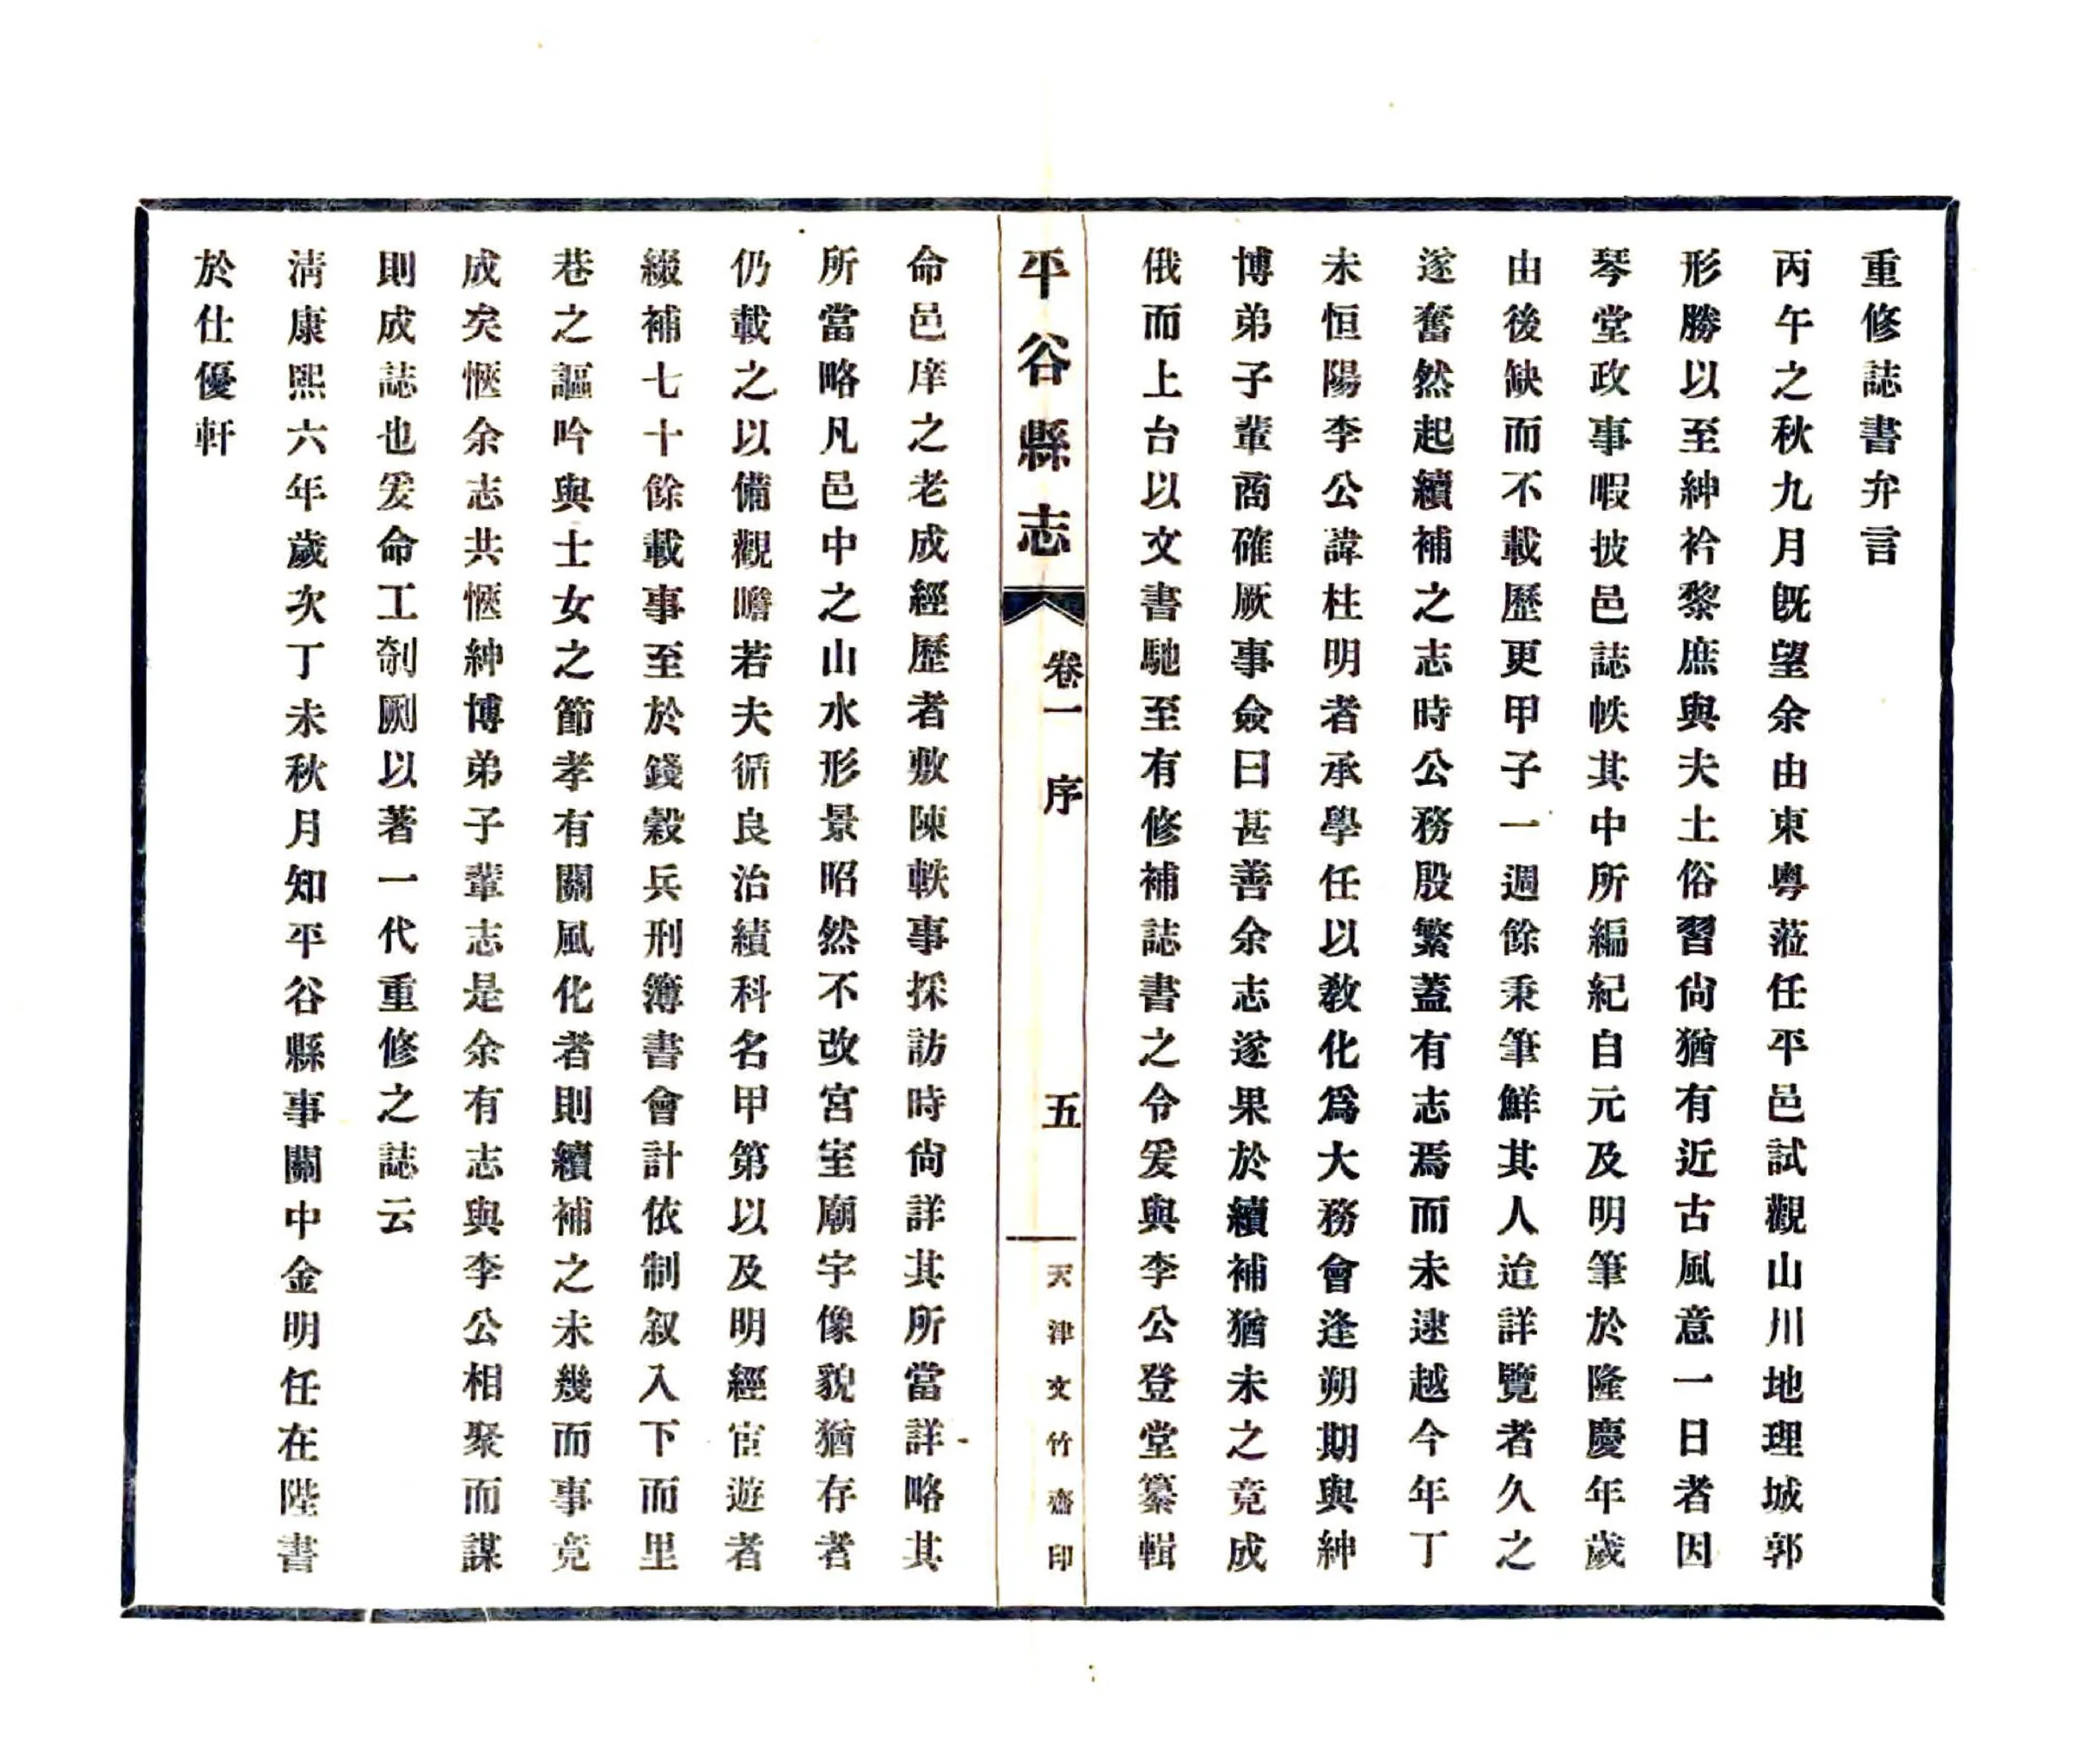 重修誌書弁言
丙午之秋九月旣望余由東粤蒞任平邑試觀山川地理城郭
形勝以至紳衿黎庶與夫土俗習尙猶有近古風意一日者因
琴堂政事暇披邑誌帙其中所編紀自元及明筆於隆慶年歲
由後缺而不載歷更甲子一週餘秉筆鮮其人迨詳覽者久之
遂奮然起續補之志時公務殷繁蓋有志焉而未逮越今年丁
未恒陽李公諱柱明者承學任以敎化爲大務會逢朔期與紳
博弟子輩商確厥事僉曰甚善余志遂果於續補猶未之竟成
俄而上台以文書馳至有修補誌書之令爰與李公登堂纂輯
平谷縣志
卷一 序
五
天津文竹齋印
命邑庠之老成經歷者敷陳軼事採訪時尙詳其所當詳略其
所當略凡邑中之山水形景昭然不改宮室廟宇像貌猶存者
仍載之以備觀瞻若夫循良治績科名甲第以及明經宦遊者
綴補七十餘載事至於錢穀兵刑簿書會計依制叙入下而里
巷之謳吟與士女之節孝有關風化者則續補之未幾而事竟
成矣愜余志共愜紳博弟子輩志是余有志與李公相聚而謀
則成誌也爰命工剞劂以著一代重修之誌云
淸康熙六年歲次丁未秋月知平谷縣事關中金明任在陛書
於仕優軒